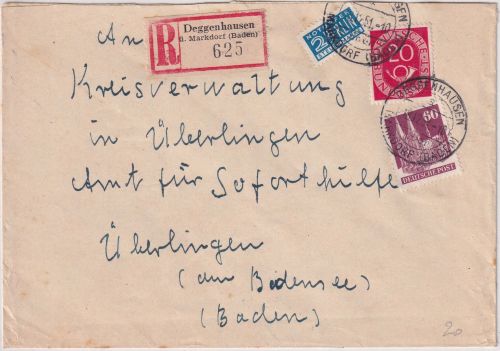 An
R
Deggenhausen
ü. Markdorf (Baden)
625
NOTOPFER
2
BERLIN
20
60
DEUTSCHE POST
Kreisverwaltung
in Überlingen
Amt für Soforthilfe
Überlingen
(am Bodensee)
(Baden)
20